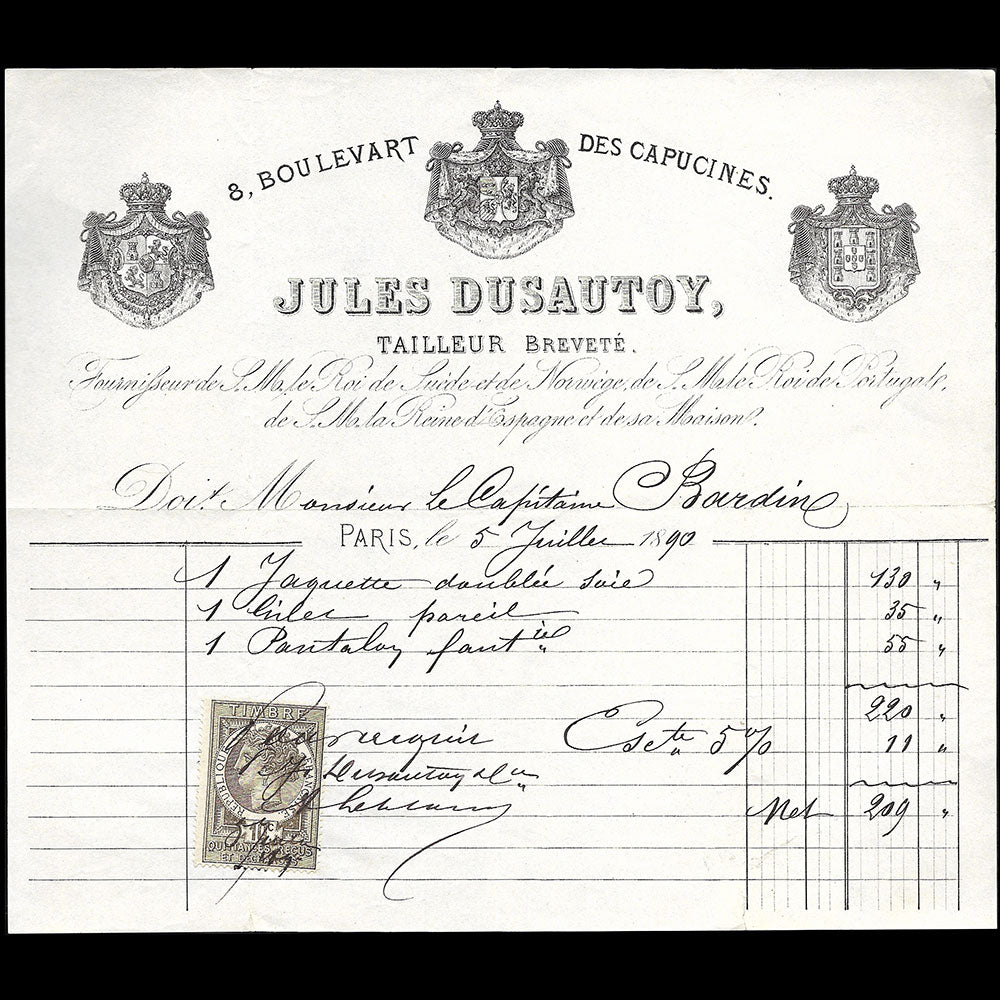 8, BOULEVART DES CAPUCINES.
JULES DUSAUTOY,
TAILLEUR BREVETÉ.
Fournisseur de S. M. le Roi de Suède et de Norwège, de S. M. le Roi de Portugal,
de S. M. la Reine d'Espagne et de sa Maison.
Doit Monsieur Le Capitaine Bardin
PARIS, le 5 Juillet 1890
1 Jaquette doublée soie 130 "
1 Gilet pareil 35 "
1 Pantalon fantie 55 "
220 "
Escte 5% 11 "
Net 209 "
TIMBRE
REPUBLIQUE FRANÇAISE
10c
QUITTANCES REÇUS
ET DECHARGES
Pour acquit
Dusautoy